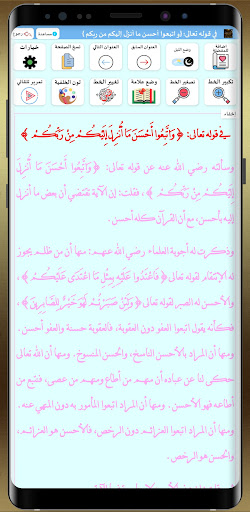 في قوله تعالى: ( و اتبعوا احسن ما انزل إليكم من ربكم )
مساعدة
رجوع
اضافة للمفضلة
وضع الليل
العنوان السابق
العنوان التالي
نسخ الصفحة
خيارات
تكبير الخط
تصغير الخط
وضع علامة
تغيير الخط
لون الخلفية
تمرير تلقائي
إخفاء
في قوله تعالى: ﴿ وَاتَّبِعُوا أَحْسَنَ مَا أُنْزِلَ إِلَيْكُمْ مِنْ رَبِّكُمْ ﴾
وسألته رضي الله عنه عن قوله تعالى: ﴿وَاتَّبِعُوا أَحْسَنَ مَا أُنْزِلَ
إِلَيْكُمْ مِنْ رَبِّكُمْ﴾، فقلت: إن الآية تقتضي أن بعض ما أنزل
إليه بأحسن، مع أن القرآن كله أحسن.
وذكرت له أجوبة العلماء رضي الله عنهم: منها أن من ظلم يجوز
له الانتقام لقوله تعالى: ﴿فَاعْتَدُوا عَلَيْهِ بِمِثْلِ مَا اعْتَدَى عَلَيْكُمْ﴾،
والأحسن له الصبر لقوله تعالى: ﴿وَلَئِنْ صَبَرْتُمْ لَهُوَ خَيْرٌ لِلصَّابِرِينَ﴾،
فكأنه يقول اتبعوا العفو دون العقوبة، فالعقوبة حسنة والعفو أحسن.
ومنها أن المراد بالأحسن الناسخ، والحسن المنسوخ. ومنها أن الله تعالى
حكى لنا عن عباده أن منهم من أطاع ومنهم من عصى، فنتبع من
أطاعه فهو الأحسن. ومنها أن المراد اتبعوا المأمور به دون المنهي عنه.
ومنها أن المراد اتبعوا العزائم دون الرخص، فالأحسن هو العزائم،
والحسن هو الرخص.